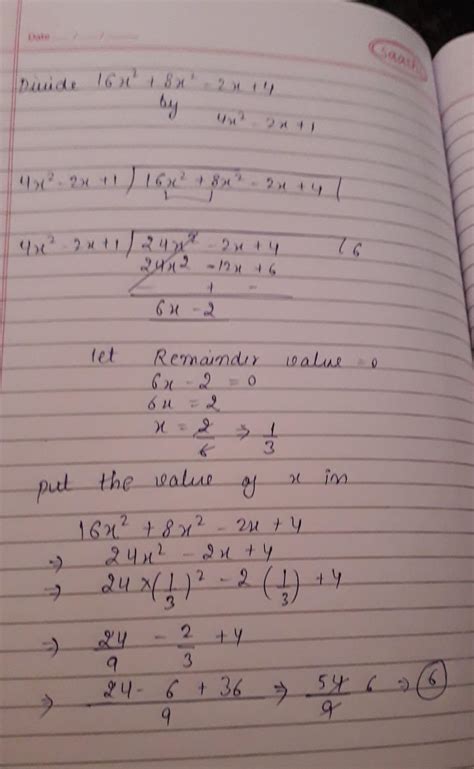 Date / /
saathi
Divide 16x² + 8x² - 2x + 4
by
4x² - 2x + 1
4x² - 2x + 1 ) 16x² + 8x² - 2x + 4 (
4x² - 2x + 1 ) 24x² - 2x + 4 ( 6
24x² - 12x + 6
- + -
6x - 2
let Remainder value = 0
6x - 2 = 0
6x = 2
x = 2/6 ⇒ 1/3
put the value of x in
16x² + 8x² - 2x + 4
⇒ 24x² - 2x + 4
⇒ 24 × (1/3)² - 2 (1/3) + 4
⇒ 24/9 - 2/3 + 4
⇒ 24 - 6 + 36 / 9 ⇒ 54/9 6 ⇒ 6